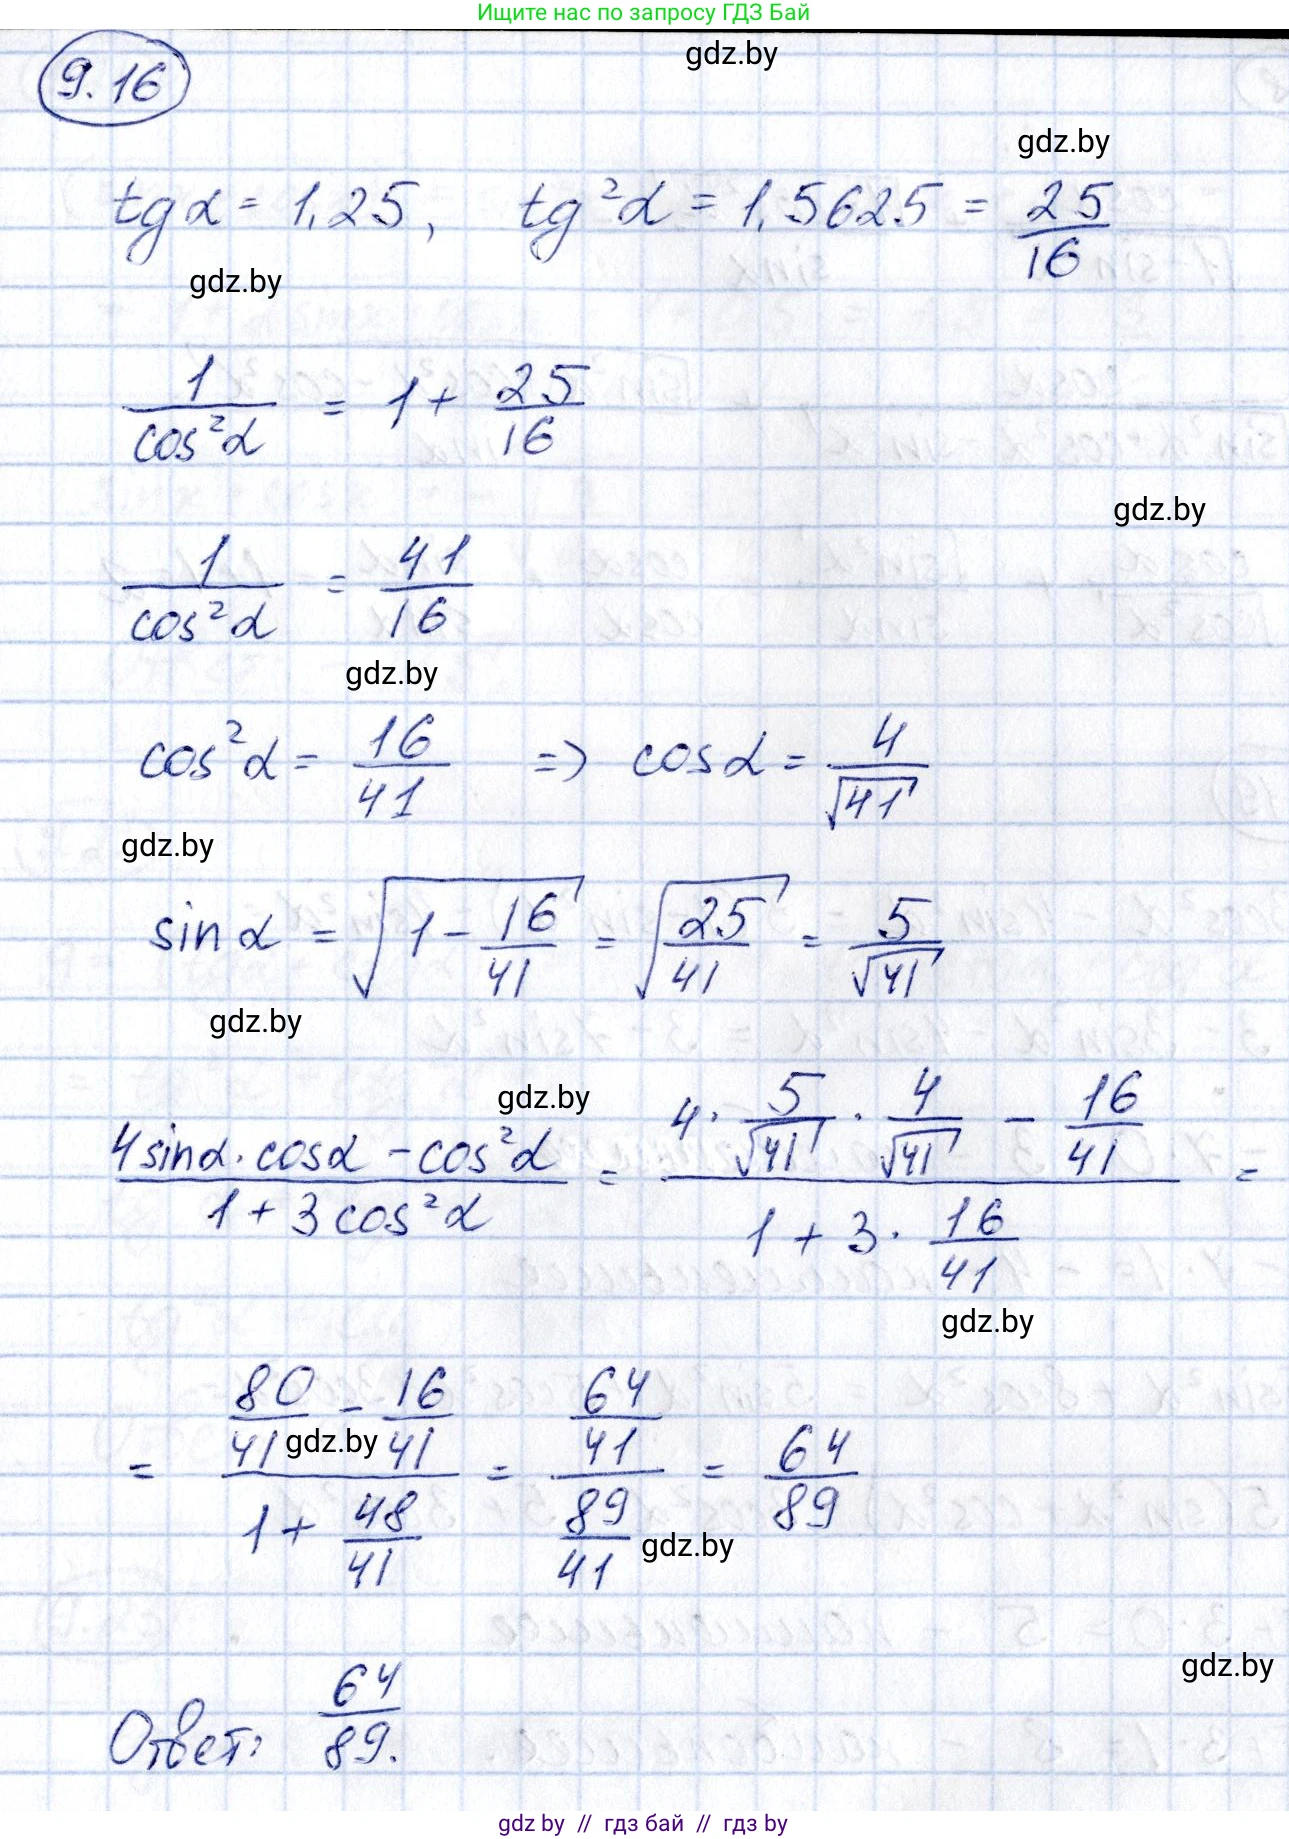 Ищите нас по запросу ГДЗ Бай
gdz.by
9.16
gdz.by
tgα = 1,25, tg²α = 1,5625 = 25/16
gdz.by
1/cos²α = 1 + 25/16
gdz.by
1/cos²α = 41/16
gdz.by
cos²α = 16/41 => cosα = 4/√41
gdz.by
sinα = √(1 - 16/41) = √(25/41) = 5/√41
gdz.by
gdz.by
(4sinα · cosα - cos²α)/(1 + 3cos²α) = (4 · 5/√41 · 4/√41 - 16/41)/(1 + 3 · 16/41) =
gdz.by
= (80/41 - 16/41)/(1 + 48/41) = (64/41)/(89/41) = 64/89
gdz.by
gdz.by
gdz.by
Ответ: 64/89.
gdz.by // гдз бай // гдз by